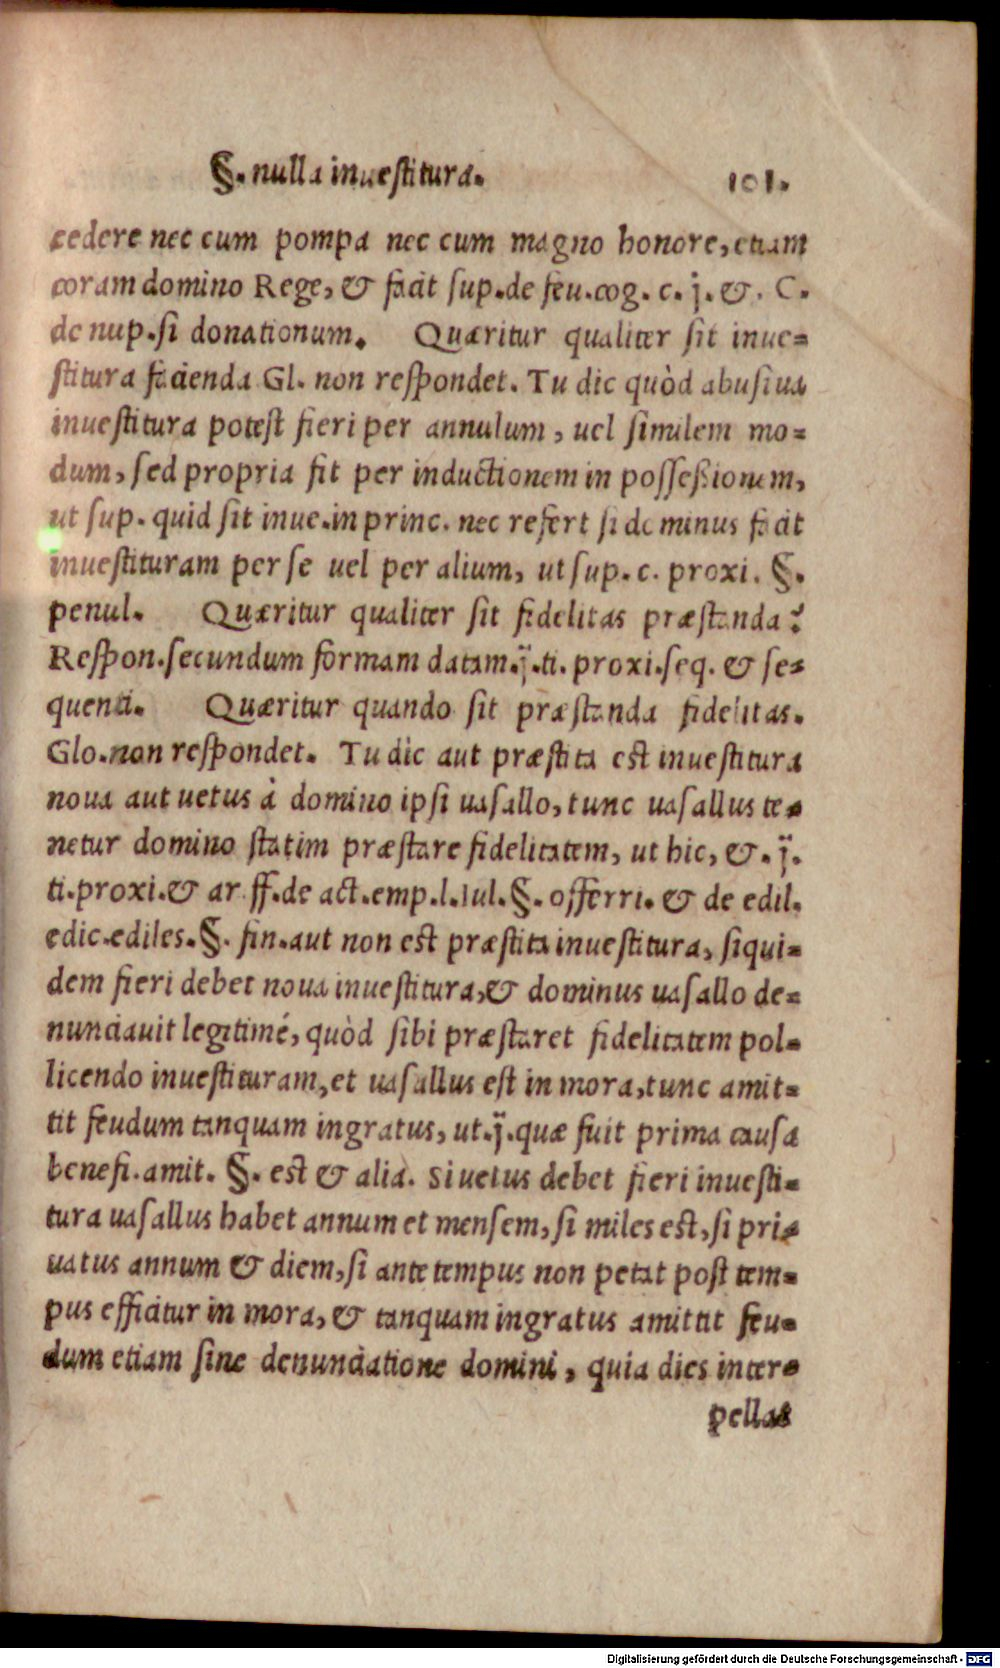 §. nulla inuestitura. 101.
cedere nec cum pompa nec cum magno honore, etiam
coram domino Rege, & facit sup. de feu. cog. c. j. &. C.
de nup. si donationum. Quæritur qualiter sit inue-
stitura facienda Gl. non respondet. Tu dic quòd abusiua
inuestitura potest fieri per annulum, uel similem mo-
dum, sed propria fit per inductionem in possessionem,
ut sup. quid sit inue. in princ. nec refert si dominus facit
inuestituram per se uel per alium, ut sup. c. proxi. §.
penul. Quæritur qualiter sit fidelitas præstanda?
Respon. secundum formam datam. ĳ. ti. proxi. seq. & se-
quenti. Quæritur quando sit præstanda fidelitas.
Glo. non respondet. Tu dic aut præstita est inuestitura
noua aut uetus à domino ipsi uasallo, tunc uasallus te-
netur domino statim præstare fidelitatem, ut hic, &. ĳ.
ti. proxi. & ar ff. de act. emp. l. Iul. §. offerri. & de edil.
edic. ediles. §. fin. aut non est præstita inuestitura, siqui-
dem fieri debet noua inuestitura, & dominus uasallo de-
nunciauit legitimé, quòd sibi præstaret fidelitatem pol-
licendo inuestituram, et uasallus est in mora, tunc amit-
tit feudum tanquam ingratus, ut. ĳ. quæ fuit prima causa
benefi. amit. §. est & alia. Si uetus debet fieri inuesti-
tura uasallus habet annum et mensem, si miles est, si pri-
uatus annum & diem, si ante tempus non petat post tem-
pus efficitur in mora, & tanquam ingratus amittit feu-
dum etiam sine denunciatione domini, quia dies inter-
pellat
Digitalisierung gefördert durch die Deutsche Forschungsgemeinschaft - DFG